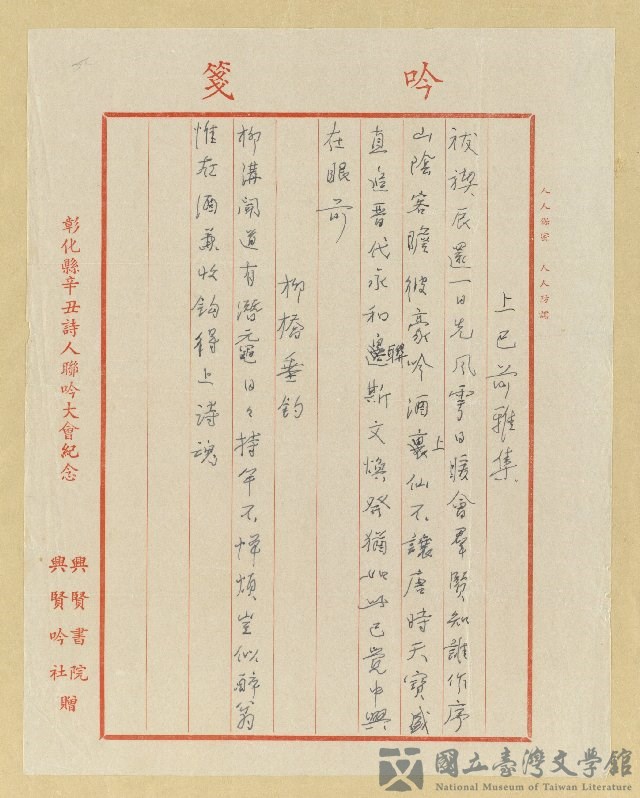 吟箋
人人防諜
上巳前雅集
祓禊辰還一日先風雩日暖會羣賢知誰作序
山陰客瞻彼豪吟酒裏上仙不讓唐時天寶盛
直追晉代永和邊聯斯文煥發猶如此已覺中興
在眼前
柳橋垂釣
柳溝聞道有潛黿日々持竿不憚煩豈似醉翁
惟在酒兼收鈎得上詩魂
彰化縣辛丑詩人聯吟大會紀念
興賢書院
興賢吟社贈
國立臺灣文學館
National Museum of Taiwan Literature